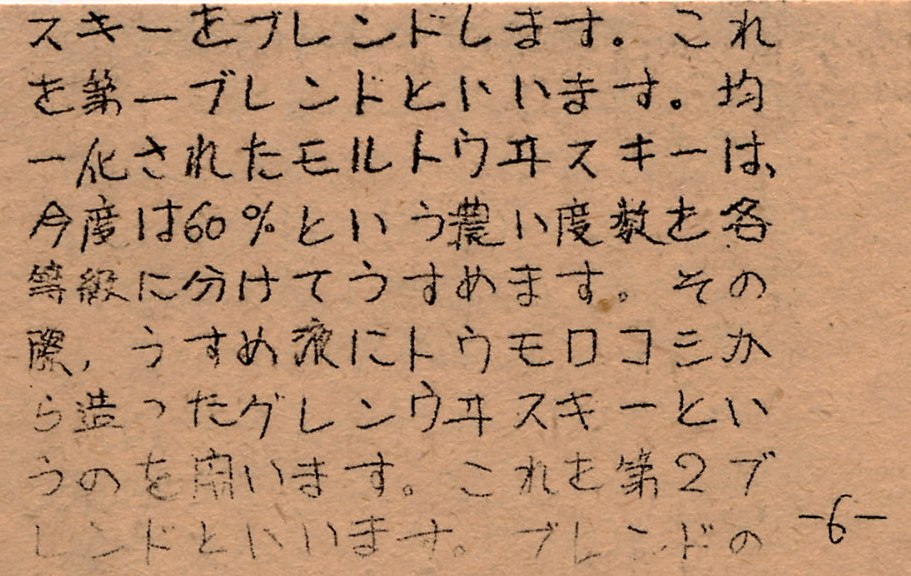 スキーをブレンドします。これ
を第一ブレンドといいます。均
一化されたモルトウヰスキーは、
今度は60%という濃い度数を各
等級に分けてうすめます。その
際，うすめ液にトウモロコシか
ら造ったグレンウヰスキーとい
うのを用います。これを第2ブ
レンドといいます。ブレンドの
-6-